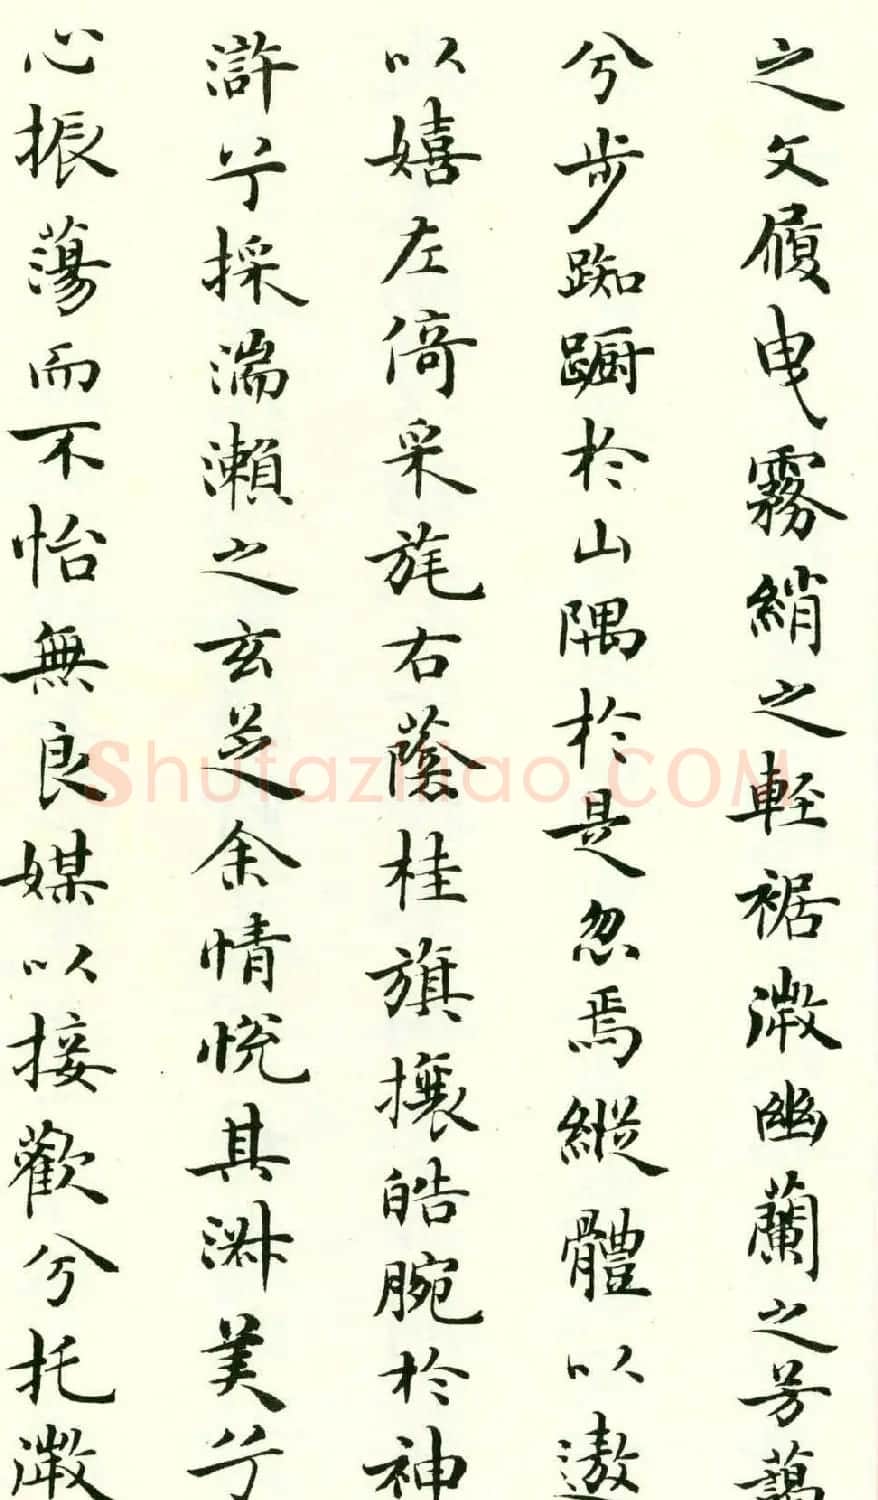 之文履曳霧綃之輕裾微幽蘭之芳藹
兮步踟躕於山隅於是忽焉縱體以遨
以嬉左倚采旄右蔭桂旗攘皓腕於神
滸兮採湍瀨之玄芝余情悅其淑美兮
心振蕩而不怡無良媒以接歡兮托微
Shufaziliao.COM